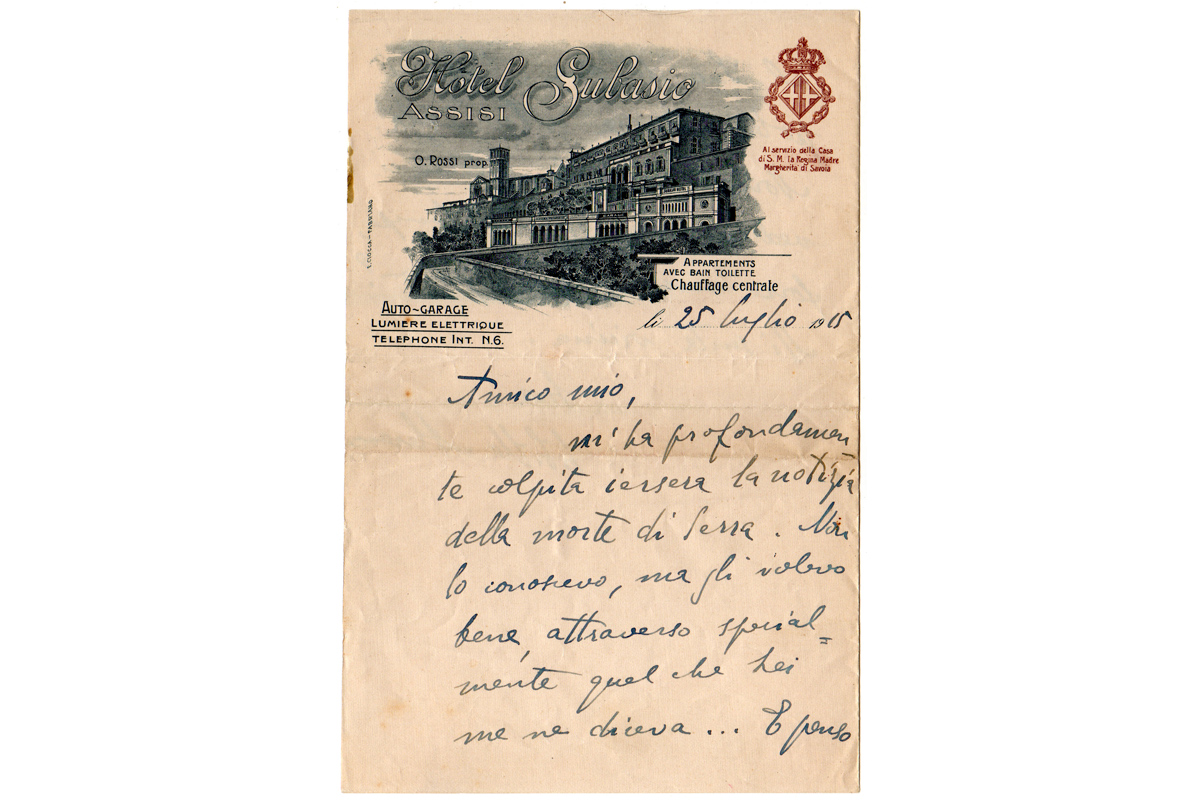 Hôtel Subasio
ASSISI
O. ROSSI prop.
Al servizio della Casa
di S. M. la Regina Madre
Margherita di Savoia
APPARTEMENTS
AVEC BAIN TOILETTE
Chauffage centrale
AUTO-GARAGE
LUMIERE ELETTRIQUE
TELEPHONE INT. N.6.
li 25 luglio 1915
Amico mio,
mi ha profondamen
te colpita iersera la notizia
della morte di Serra. Non
lo conoscevo, ma gli volevo
bene, attraverso special=
mente quel che Lei
me ne diceva ... E penso